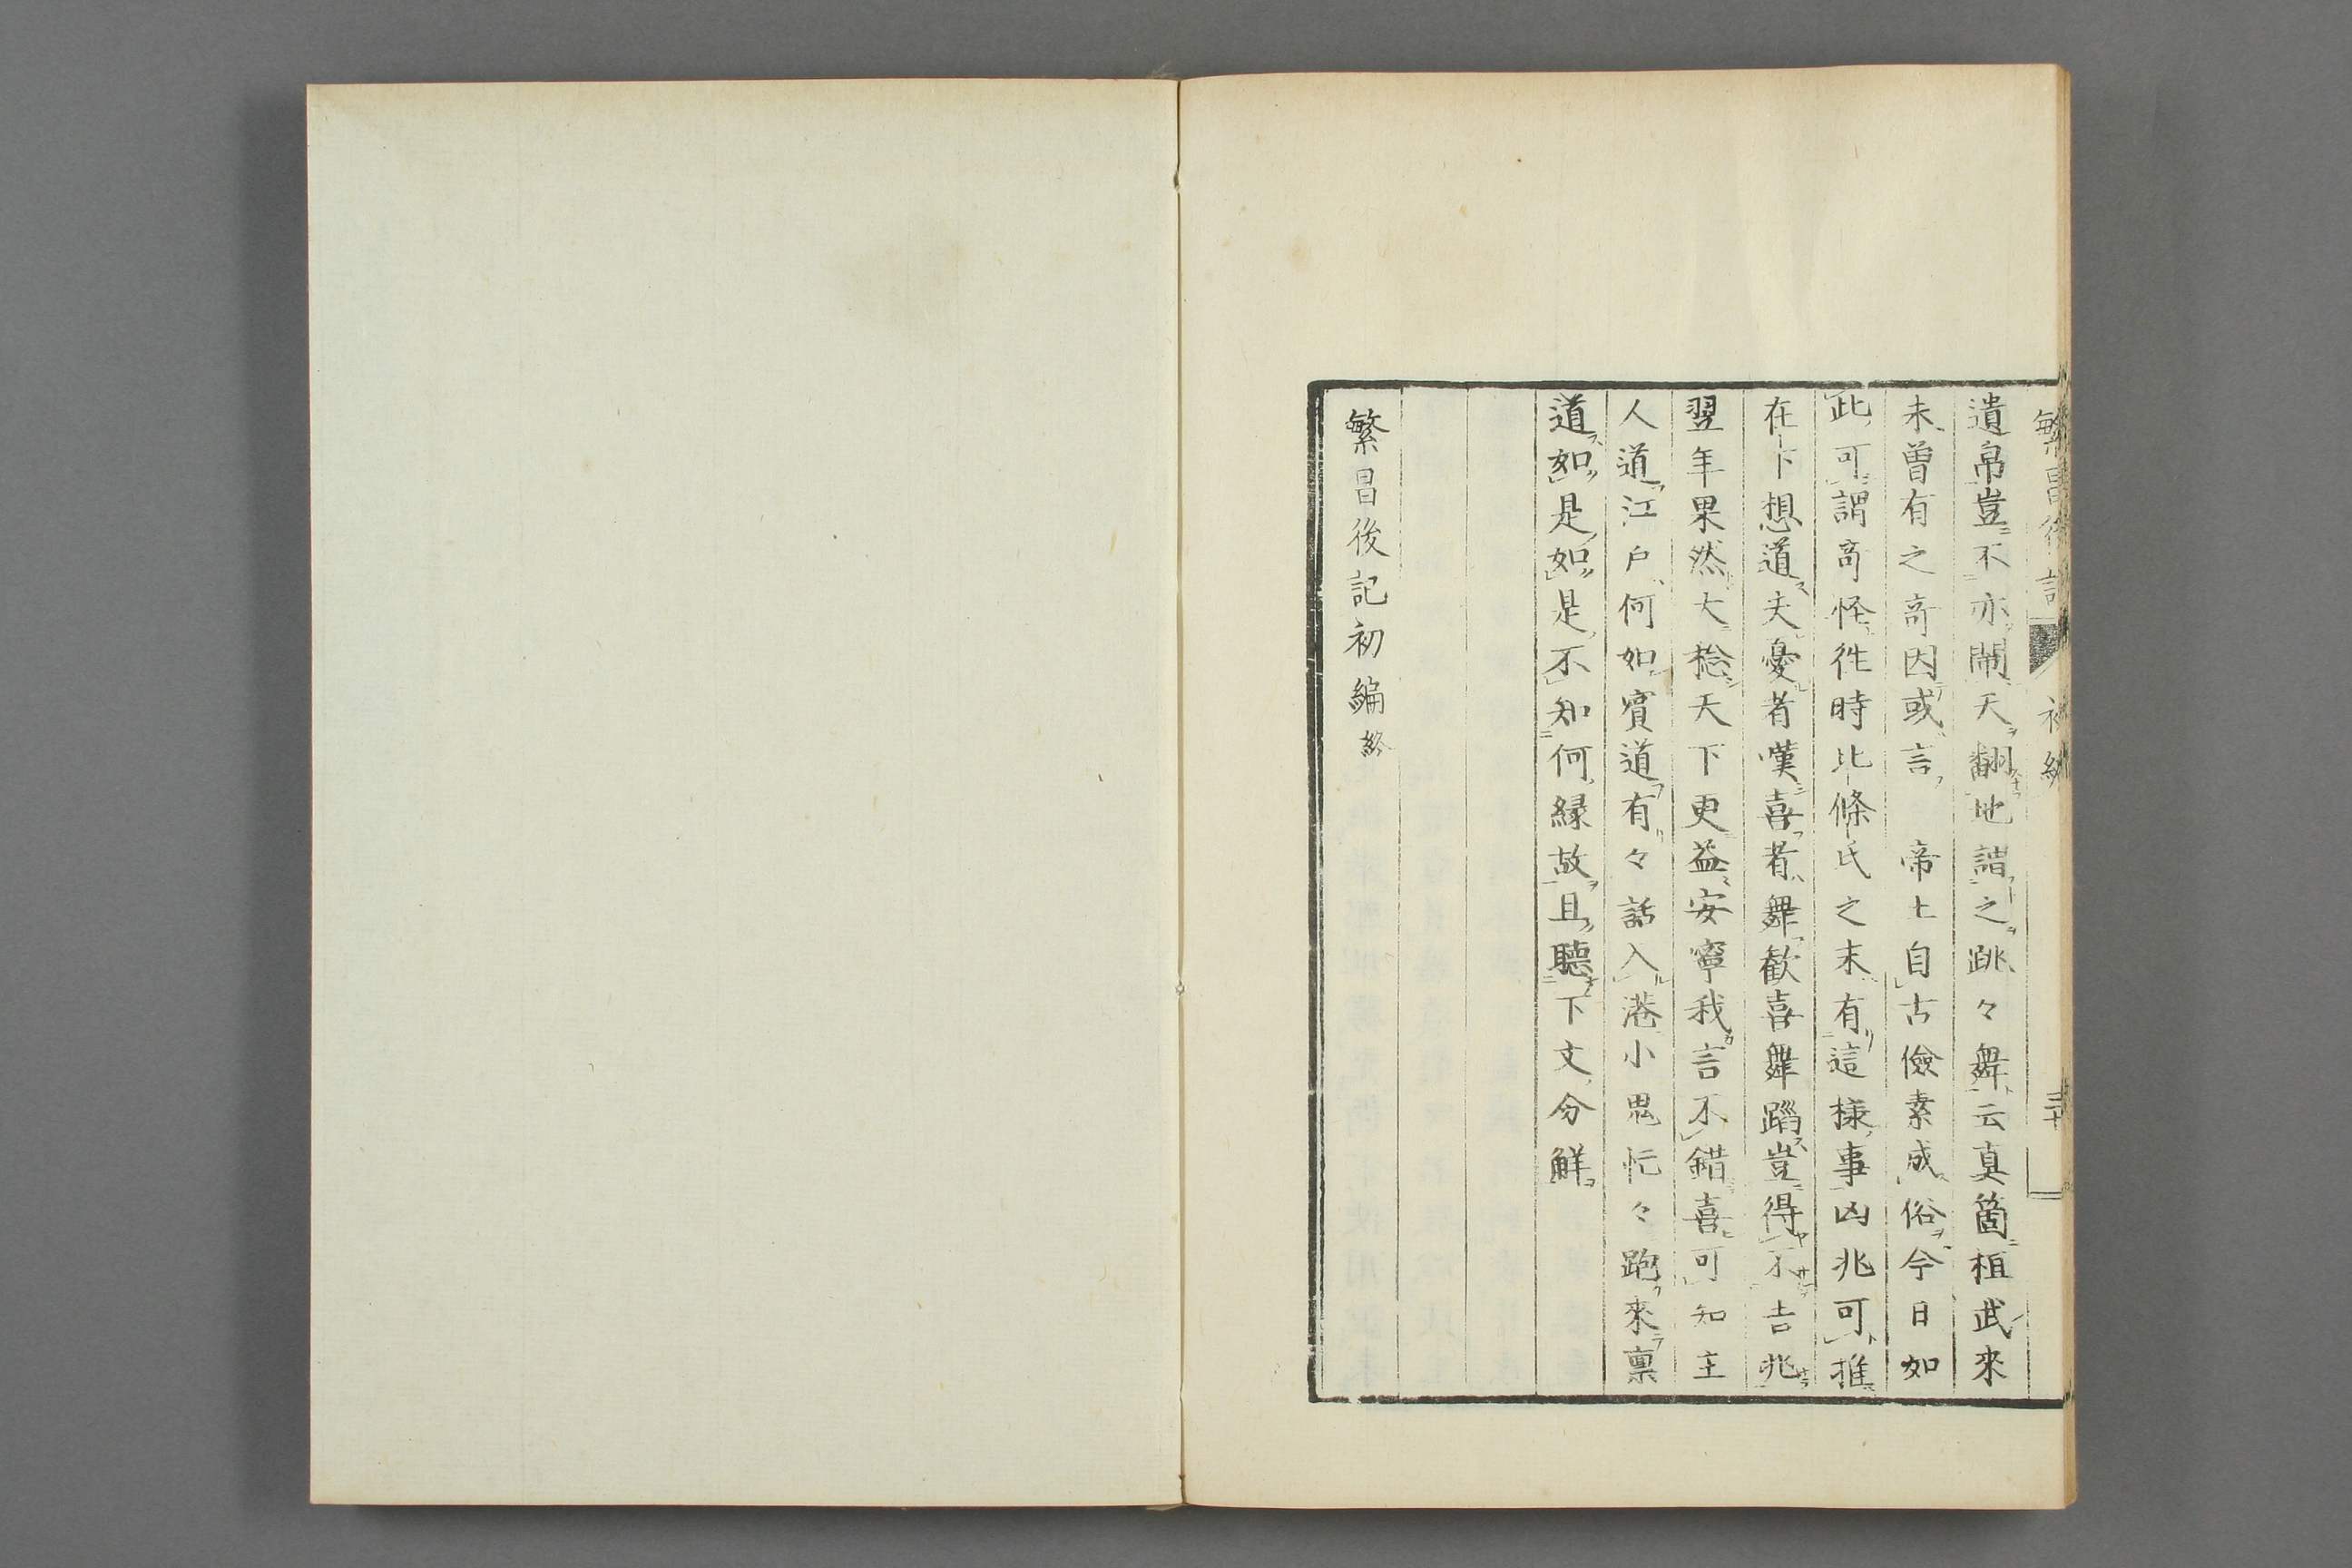 繁昌後記 初編 三十
遺帛豈不亦鬧天翻地謟之跳々舞云真箇植武來
未曽有之奇因或言 帝土自古儉素成俗今日如
此可謂奇怪徃時北條氏之末有這様事凶兆可推
在下想道夫憂者嘆喜者舞歓喜舞蹈豈得不吉兆
翌年果然大稔天下更益安寧我言不錯喜可知主
人道江戸何如賓道有々話入港小鬼忙々跑來稟
道如是如是不知何縁故且聽下文分觧
繁昌後記初編終